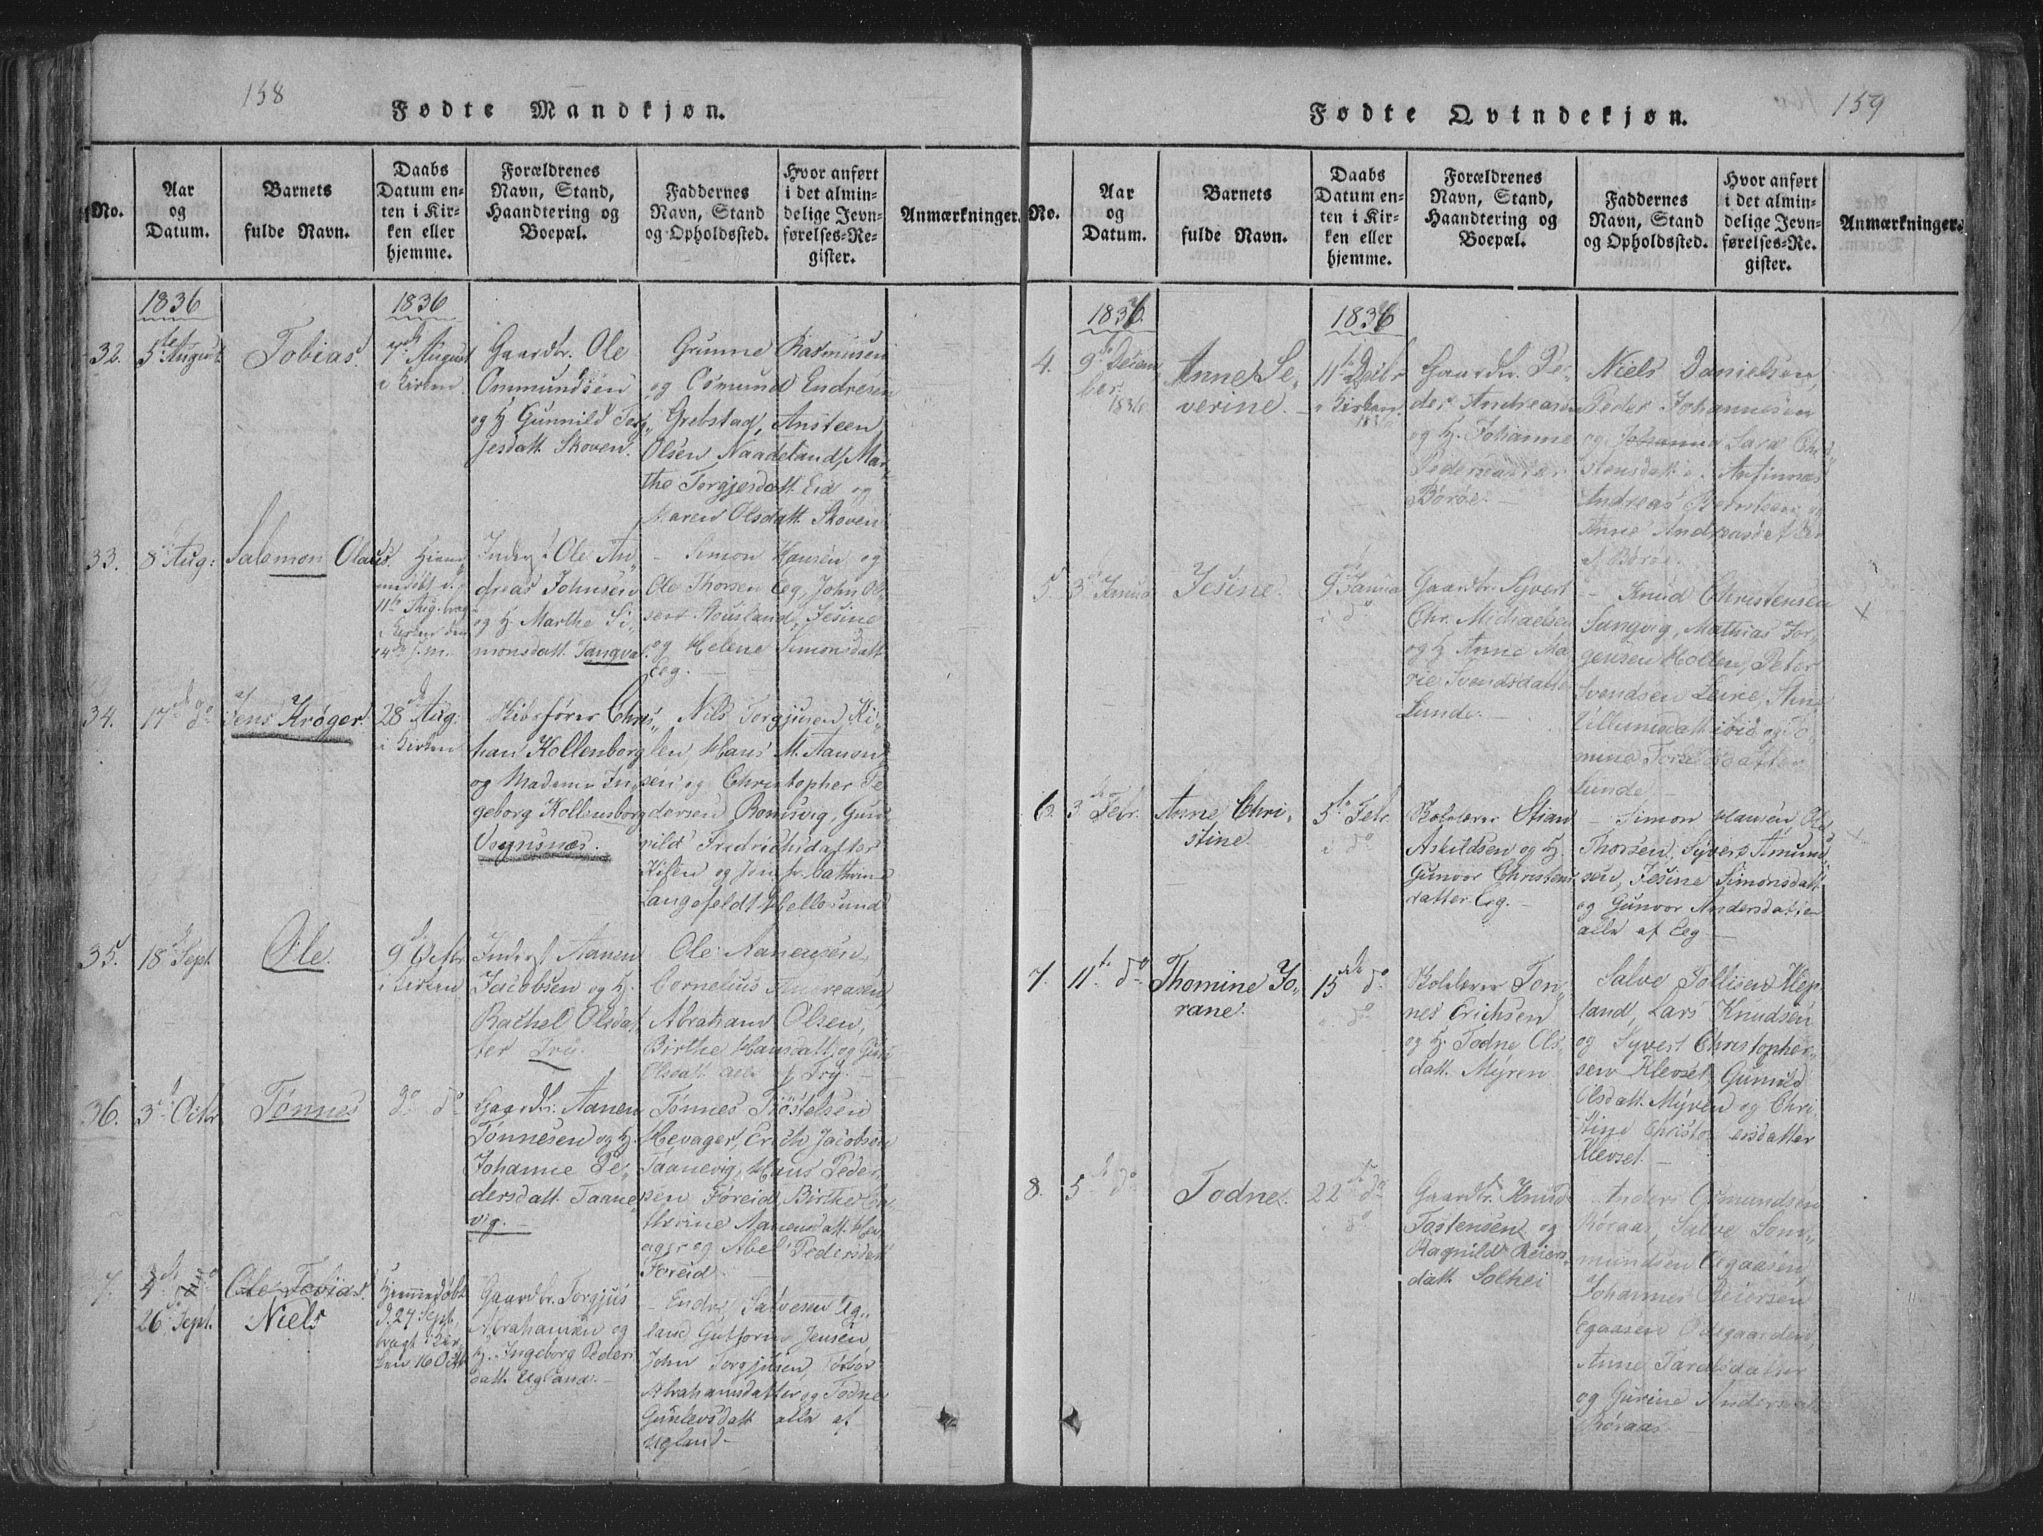 158
Fødte Mandkjøn.
No.
Aar
og
Datum.
Barnets
fulde Navn.
Daabs
Datum en-
ten i Kir-
ken eller
hjemme.
Forældrenes
Navn, Stand,
Haandtering og
Boepæl.
Faddernes
Navn, Stand
og Opholdssted.
Hvor anført
i det almin-
delige Jevn-
førelses-Re-
gister.
Anmærkninger.
1836
1836
32.
5te August
Tobias.
7de August
i Kirken
Gaardbr. Ole
Ommundsen
og H. Gunnild Tor-
jesdatt. Skoven.
Gunne Rasmusen
og Osmund Endresen
Grebstad, Ansteen
Olsen Naadeland, Mar-
the Torgjesdatt. Eid og
Maren Olsdatt. Skoven
33.
8de Aug:
Salomon Olaus.
Hjem-
medøbt d.
11te Aug. bragt
i Kirken den
14de s.m.
Inderst Ole An-
dreas Johnsen
og H. Marthe Si-
monsdatt. Tangval.
Simon Hansen og
Ole Thorsen Eeg, John Ol-
sen Nousland, Jesine
og Helene Simonsdatt.
Eeg.
34.
17de do
Jens Krøger.
28de Aug:
i Kirken
Kibsfører Chris-
tian Kollenborg
og Madame In-
geborg Kollenborg
Vognsnæs.
Nils Torgjusen Ki-
len, Hans M. Aanon-
sen og Christopher Pe-
dersen Romsvig, Gun-
vild Fredrichsdatter
Kilen og Jomfr. Cathrine
Langefeldt Hellesund
35.
18de Sept
Ole.
9de Octbr
i Kirken
Inderst Aanen
Jacobsen og H.
Rachel Olsdat-
ter Try.
Ole Aanensen,
Cornelius Andreasen,
Abraham Olsen,
Birthe Hansdatt. og Guri
Olsdatt. alle af Try.
36.
3de Octbr
Tønnes
do do
Gaardbr. Aanen
Tønnesen og H.
Johanne Pe-
dersdatt. Taane-
vig.
Tønnes Tostelsen
Hevager, Erich Jacobsen
Taanevig, Hans Peder-
sen Foreid, Birthe Ca-
thrine Aanensdatt. Hev-
ager og Abel Pedersdatt.
Foreid.
7.
26de Sept.
Ole Tobias.
Niels
Hjemmedøbt
d. 27 Sept.
bragt i Kir-
ken 16 Octbr
Gaardbr. Torgjus
Abrahamsen og
H. Ingeborg Peders-
datt. Ugland.
Endre Salvesen Ug-
land, Guttorm Jensen
John Torgjusen, Torbor
Abrahamsdatter og Todne
Gunlevsdatt alle af
Ugland.
159
Fødte Qvindekjøn.
No.
Aar
og
Datum.
Barnets
fulde Navn.
Daabs
Datum en-
ten i Kir-
ken eller
hjemme.
Forældrenes
Navn, Stand,
Haandtering og
Boepæl.
Faddernes
Navn, Stand
og Opholdssted.
Hvor anført
i det almin-
delige Jevn-
førelses-Re-
gister.
Anmærkninger.
1836.
1836
4.
9de Decem
ber
1836
Anne Se-
verine.
11te Decbr
i Kirken
1836
Gaardbr. Pe-
der Andreasen
og H. Johanne
Pedersdatter
Borøe.
Niels Danielsen,
Peder Johannesen
og Johanna Sara Chri-
stensdatt.
Andreas Berntsen og
Anne Andreasdatter
af Borøe.
5.
3de Janua
Jesine.
9de Janua
i do
Gaardbr. Syvert
Chr. Michaelsen
og H. Anne Ma-
rie Svendsdatter
Lunde.
Knud Christensen
Sangvig, Mathias Jør-
gensen Hollen, Peter
Svendsen Leire, Ane
Villumsdatt ibid og To-
mine Torkildsdatter
Lunde.
6.
3de Febr.
Anne Chri-
stine.
5te Febr.
i do
Boldsører Stian
Askildsen og H.
Gunvor Christens
datter Eeg.
Simon Hansen, Ole
Thorsen, Syvert Amund-
sen, Jesine Simonsdatt.
og Gunvor Andersdatter
alle af Eeg
7.
11te do
Thomine Jo-
rane.
15de do
do
Tøn-
nes Erichsen
og H. Todne Ols-
datt. Myren
Salve Tollisen Klep-
land, Lars Knudsen
og Syvert Christopher-
sen Klevset, Gunvild
Olsdatt. Myren og Chri-
stine Christophersdatter
Klevset.
8.
5te do
Todne.
22de do
do
Gaardbr. Knud
Tostensen og
Ragnild Reiers-
datt. Solhei
Anders Osmundsen
Røraas, Salve Tom-
mundsen Egaasen,
Johannes Reiersen
Egaasen Ødegaarden,
Anne Taralsdatter
og Gurine Andersdatt
Røraas.